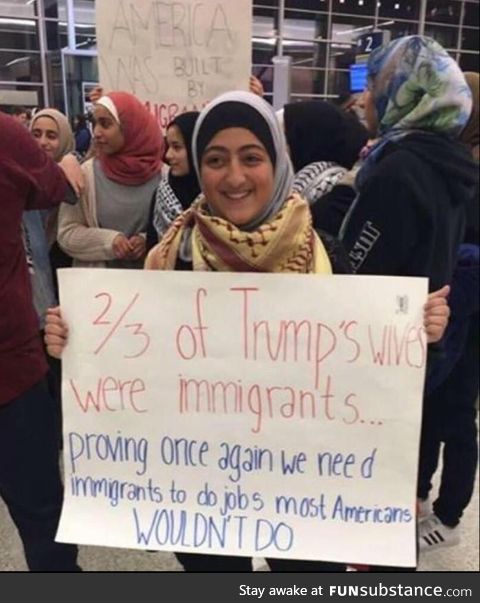 AMERICA
WAS BUILT
BY
IMMIGRANTS
2
2/3 of Trump's wives
were immigrants...
proving once again we need
immigrants to do jobs most Americans
WOULDN'T DO
Stay awake at FUNsubstance.com